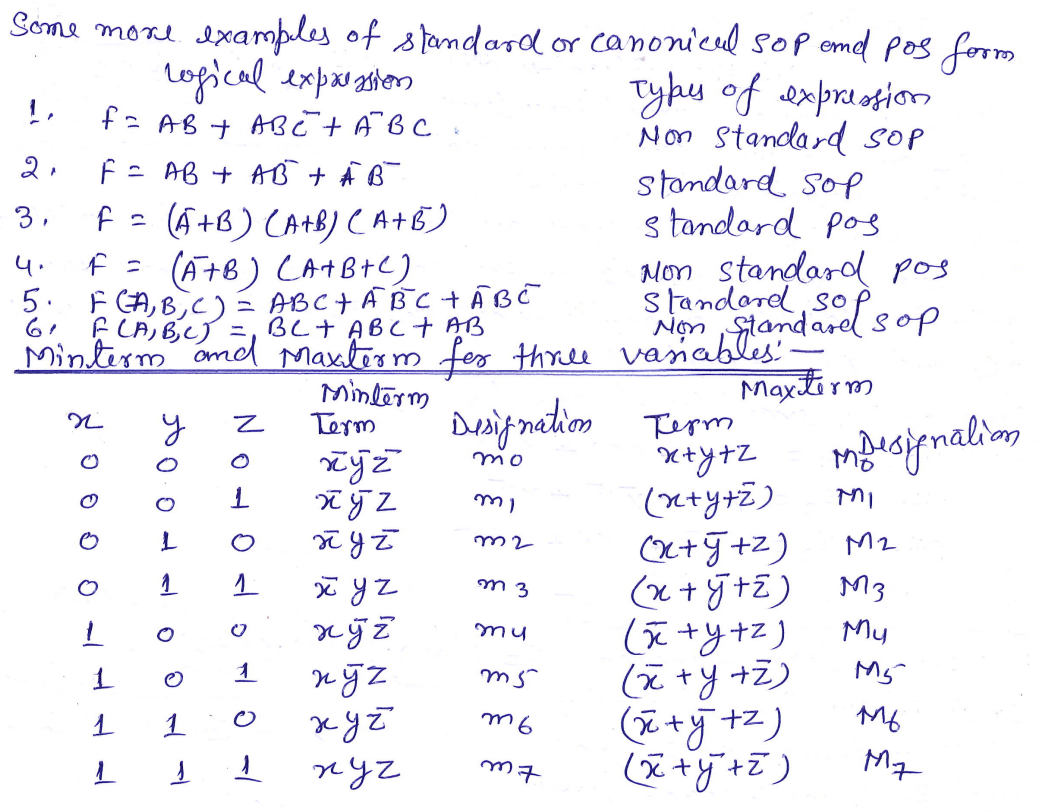 Some more examples of standard or canonical SOP and POS form
logical expression Types of expression
1. f = AB + ABC̅ + A̅BC Non Standard SOP
2. F = AB + AB̅ + A̅B̅ Standard SOP
3. f = (A̅+B) (A+B) (A+B̅) Standard POS
4. F = (A̅+B) (A+B+C) Non Standard POS
5. F(A,B,C) = ABC + A̅B̅C + A̅BC̅ Standard SOP
6. F(A,B,C) = BC + ABC + AB Non Standard SOP
Minterm and Maxterm for three variables:—
Minterm Maxterm
x y z Term Designation Term Designation
0 0 0 x̅y̅z̅ m0 x+y+z M0
0 0 1 x̅y̅z m1 (x+y+z̅) M1
0 1 0 x̅yz̅ m2 (x+y̅+z) M2
0 1 1 x̅yz m3 (x+y̅+z̅) M3
1 0 0 xy̅z̅ m4 (x̅+y+z) M4
1 0 1 xy̅z m5 (x̅+y+z̅) M5
1 1 0 xyz̅ m6 (x̅+y̅+z) M6
1 1 1 xyz m7 (x̅+y̅+z̅) M7